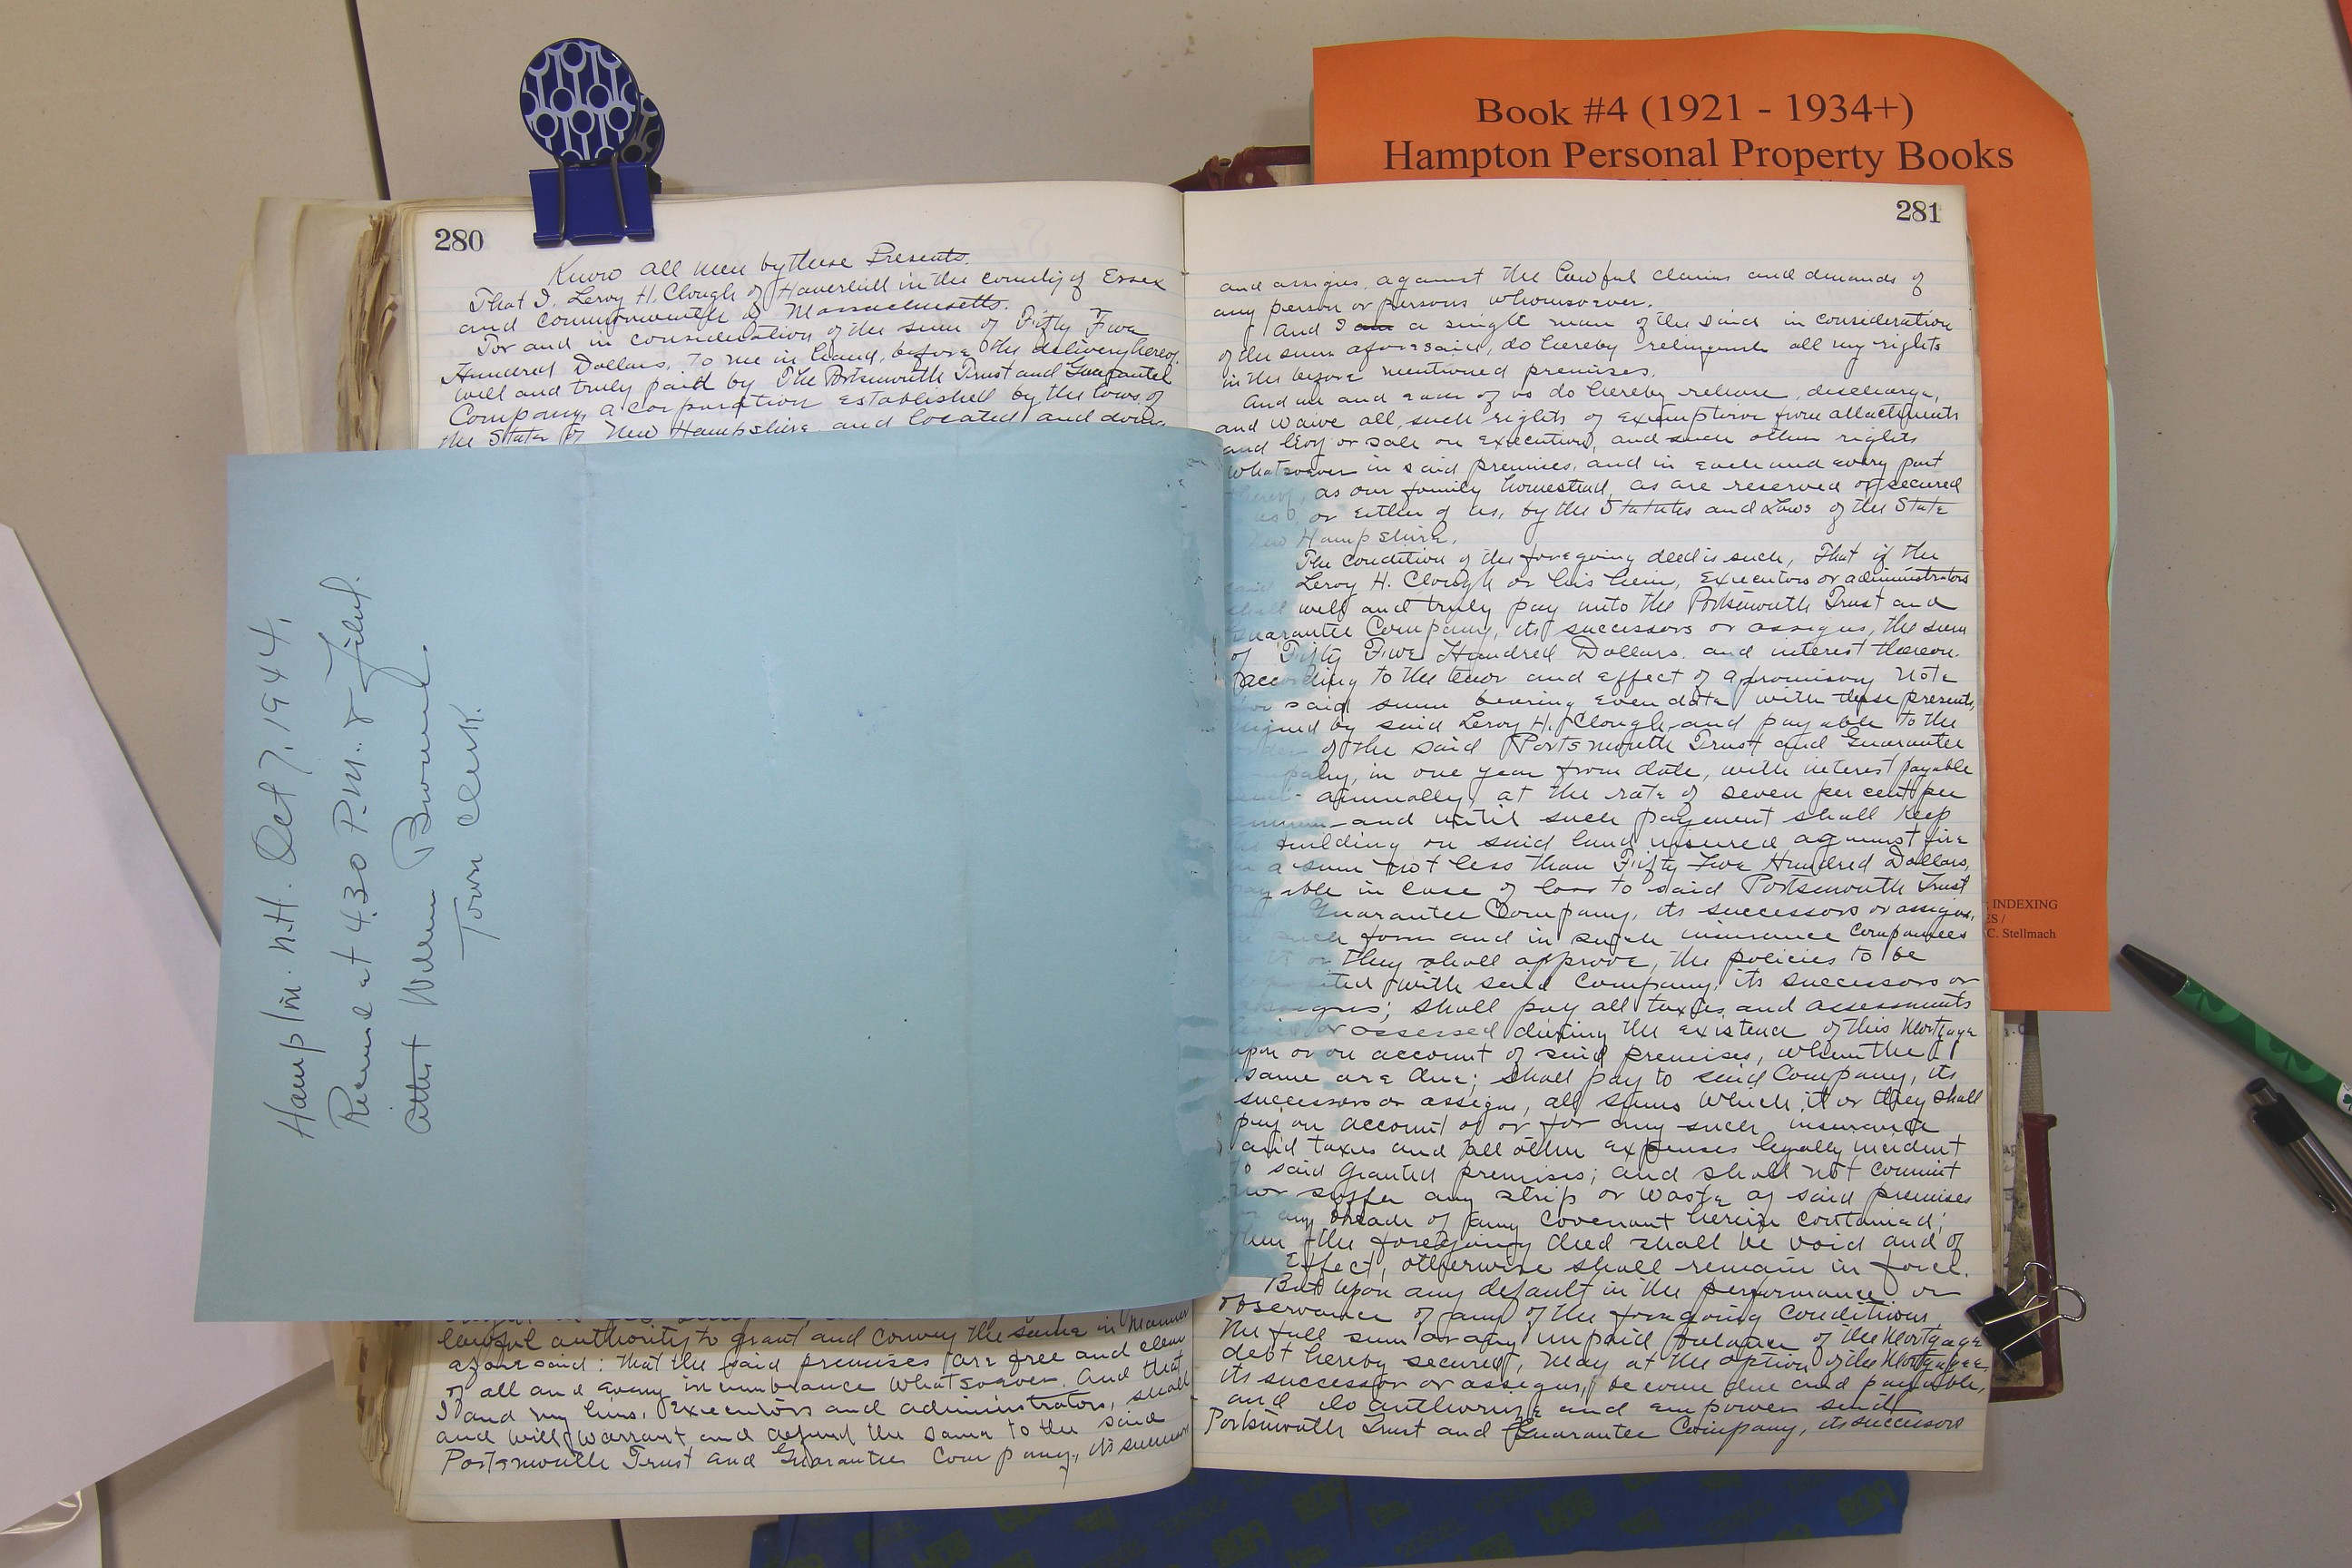 Book #4 (1921 - 1934+)
Hampton Personal Property Books
INDEXING
ES /
C. Stellmach
280
Know all men by these Presents.
That I, Leroy H. Clough of Haverhill in the county of Essex
and commonwealth of Massachusetts.
For and in consideration of the sum of Fifty Five
Hundred Dollars, to me in hand, before the delivery hereof,
well and truly paid by The Portsmouth Trust and Guarantee
Company, a corporation established by the laws of
the State of New Hampshire and located and doing
Hampton. N.H. Oct 7, 1944,
Received at 4.30 P.M. & Filed.
Attest William Brown
Town Clerk.
lawful authority to grant and convey the same in manner
aforesaid: that the said premises are free and clear
of all and every incumbrance whatsoever. And that
I and my heirs, Executors and administrators, shall
and will warrant and defend the same to the said
Portsmouth Trust and Guarantee Company, its successors
281
and assigns, against the lawful claims and demands of
any person or persons whomsoever.
And I am a single man of the said in consideration
of the sum aforesaid, do hereby relinquish all my rights
in the before mentioned premises.
And we and each of us do hereby release, discharge,
and waive all such rights of exemption from attachments
and levy or sale on execution, and such other rights
whatsoever in said premises, and in each and every part
thereof, as our family homestead, as are reserved or secured
us, or Either of us, by the Statutes and Laws of the State
New Hampshire.
The condition of the foregoing deed is such, That if the
said Leroy H. Clough or his heirs, Executors or administrators
shall well and truly pay unto the Portsmouth Trust and
Guarantee Company, its successors or assigns, the sum
of Fifty Five Hundred Dollars. and interest thereon.
according to the tenor and effect of a promisory note
for said sum bearing even date with these presents,
signed by said Leroy H. Clough and payable to the
order of the said Portsmouth Trust and Guarantee
Company, in one year from date, with interest payable
semi-annually, at the rate of seven per cent per
annum-and until such payment shall keep
building on said land insured against fire
in a sum not less than Fifty Five Hundred Dollars,
payable in case of loss to said Portsmouth Trust
Guarantee Company, its successors or assigns,
in such form and in such insurance companies
it or they shall approve, the policies to be
deposited with said Company, its successors or
assigns; shall pay all taxes and assessments
or assessed during the existence of this Mortgage
upon or on account of said premises, when the
same are due; shall pay to said Company, its
successors or assigns, all sums which it or they shall
pay on account of or for any such insurance
and taxes and all other expenses legally incident
to said granted premises; and shall not commit
nor suffer any strip or waste of said premises
or any breach of any covenant herein contained;
then the foregoing deed shall be void and of
Effect, otherwise shall remain in force.
But upon any default in the performance or
observance of any of the foregoing conditions
the full sum or any unpaid balance of the Mortgage
debt hereby secured, may at the option of the Mortgagee,
its successor or assigns, become due and payable,
and do authorize and empower said
Portsmouth Trust and Guarantee Company, its successors